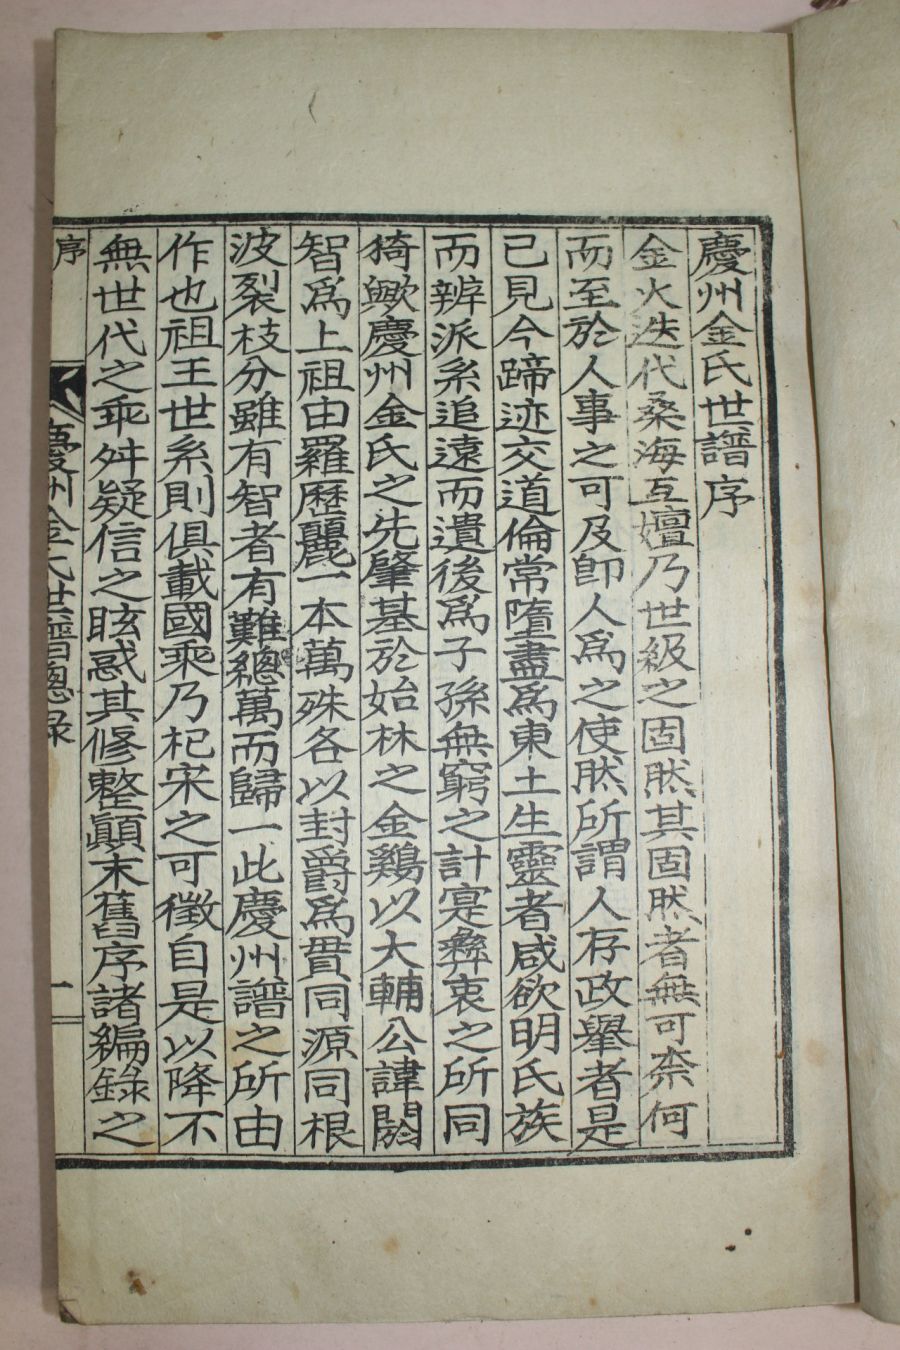 慶州金氏世譜序
金火迭代桑海互嬗乃世級之固然其固然者無可奈何
而至於人事之可及卽人爲之使然所謂人存政擧者是
已見今蹄迹交道倫常墮盡爲東土生靈者咸欲明氏族
而辨派系追遠而遺後爲子孫無窮之計寔彜衷之所同
猗歟慶州金氏之先肇基於始林之金鷄以大輔公諱閼
智爲上祖由羅歷麗一本萬殊各以封爵爲貫同源同根
波裂枝分雖有智者有難總萬而歸一此慶州譜之所由
作也祖王世系則俱載國乘乃杞宋之可徵自是以降不
無世代之乖舛疑信之眩惑其修整顚末舊序諸編錄之
序
慶州金氏世譜總錄
一